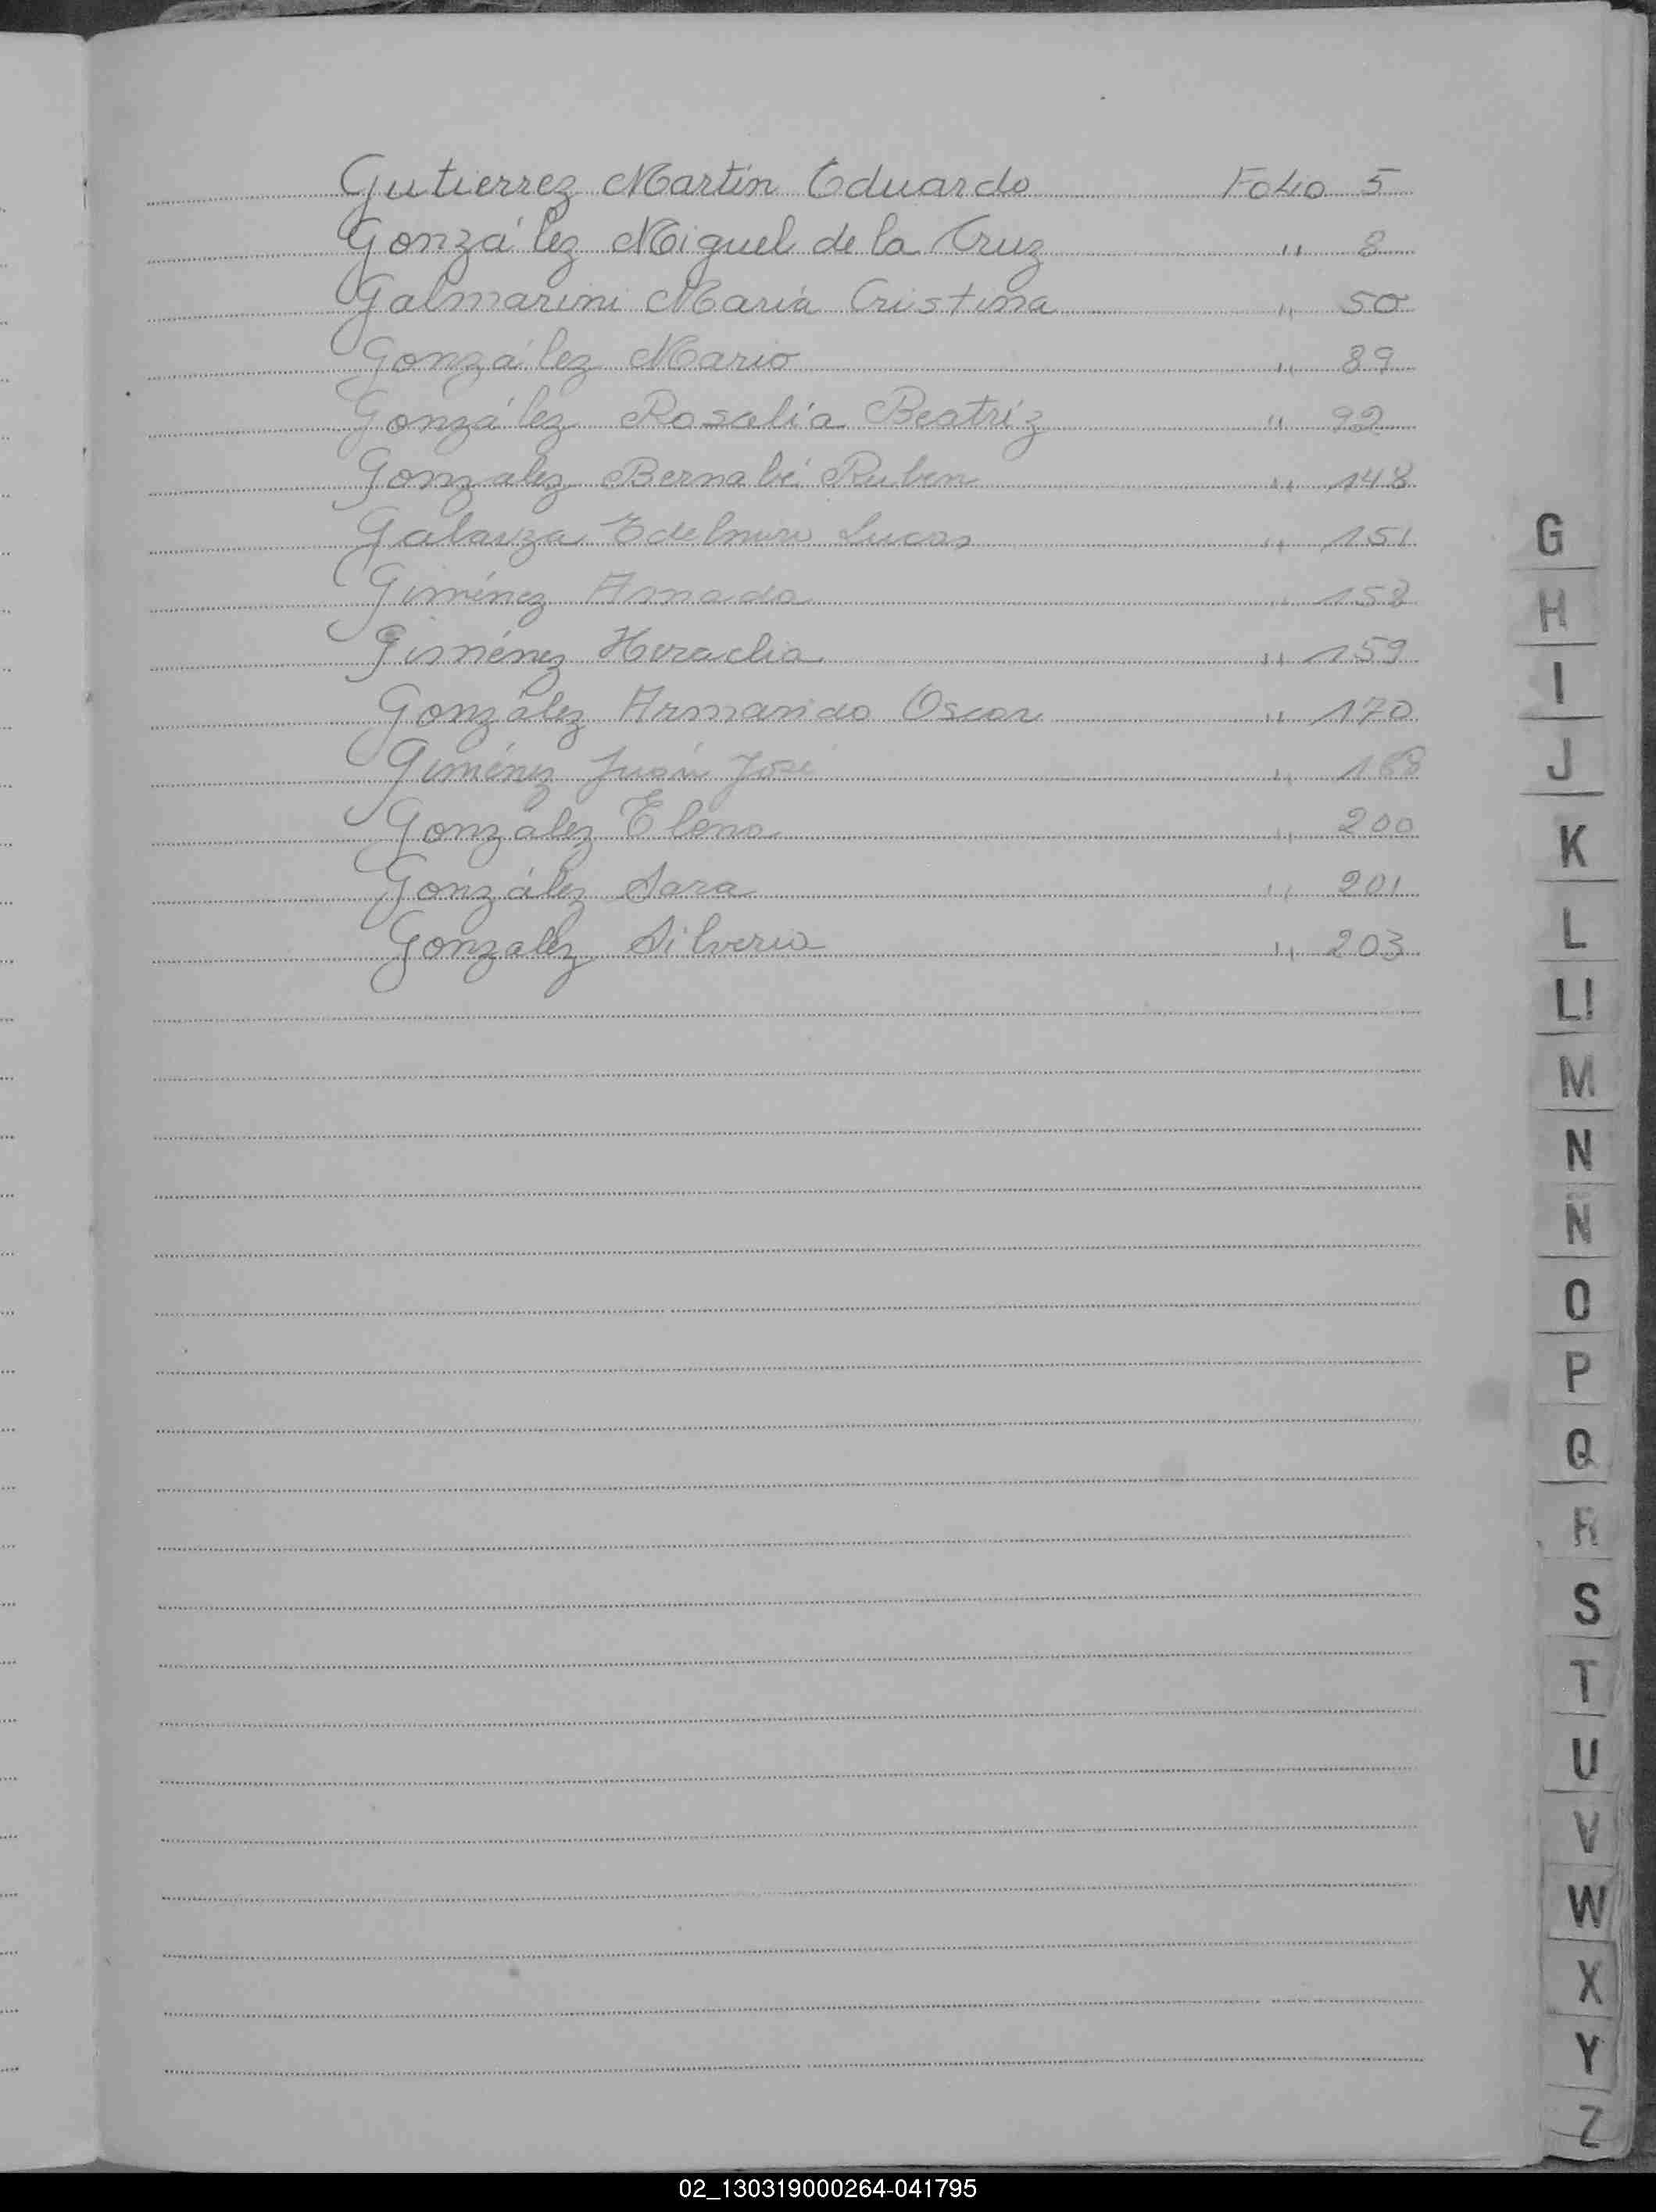 Gutierrez Martín Eduardo Folio 5
González Miguel de la Cruz " 8
Galmarini María Cristina " 50
González Mario " 89
González Rosalía Beatríz " 92
Gonzalez Bernabé Ruben " 148
Galarza Edelmiro Lucas " 151
Giménez Amada " 158
Giménez Heraclia " 159
González Armando Oscar " 170
Giménez Juán José "
González Elena " 200
González Sara " 201
Gonzalez Silverio " 203
G
H
I
J
K
L
Ll
M
N
Ñ
O
P
Q
R
S
T
U
V
W
X
Y
Z
02_130319000264-041795